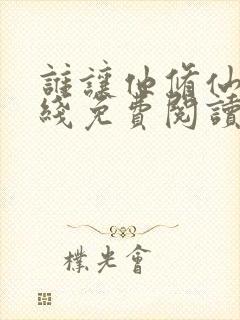 誰讓他修仙
綫免費閱讀
樸光會